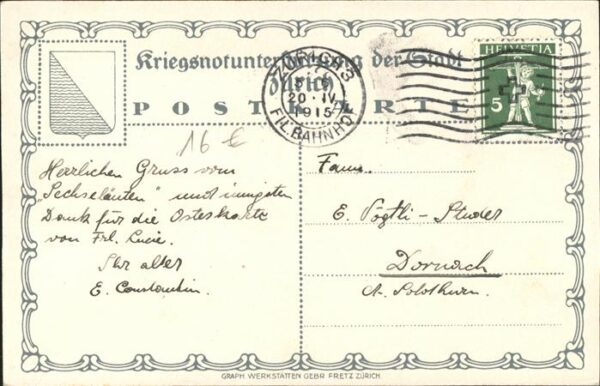 Kriegsnotunterstützung der Stadt
Zürich
POSTKARTE
ZÜRICH 3
20·IV
1915
FIL. BAHNHOF
HELVETIA
5
16 €
Herzlichen Gruss vom
"Sechseläuten" und innigsten
Dank für die Osterkarte
von Frl. Lucie.
Ihr alter
E. Constantin.
Fam.
E. Vögtli - Studer
Dornach
Kt. Solothurn.
GRAPH. WERKSTÄTTEN GEBR. FRETZ ZÜRICH.